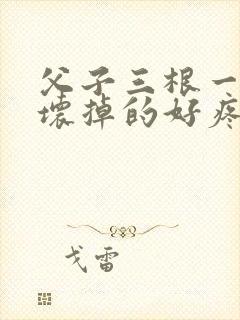 父子三根一
壞掉的好疼
戈雷